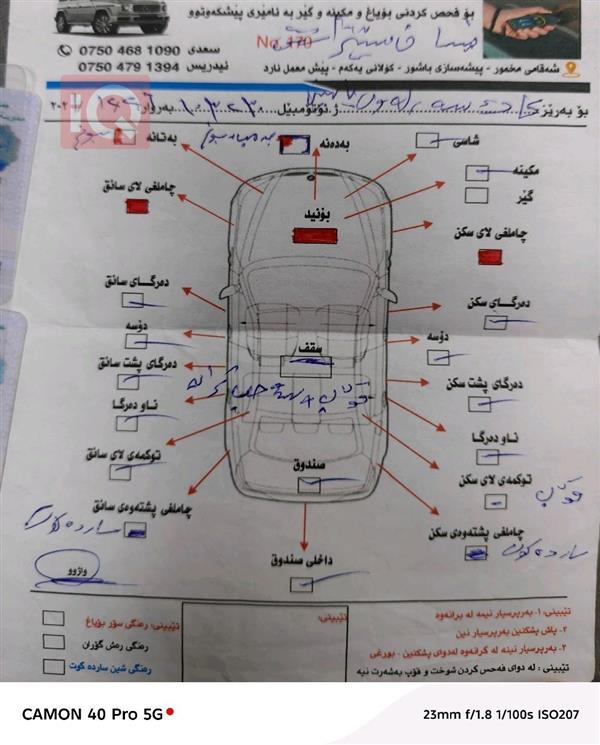 بۆ فحص کردنی بۆیاغ و مکینە و گێر بە ئامێری پێشکەوتوو
0750 468 1090 سعدی
0750 479 1394 ئیدریس
No. 170
شەقامی مخمور - پیشەسازی باشور - کۆلانی یەکەم - پێش معمل ئارد
بۆ بەڕێز
ژ.ئۆتۆمبێل
بەروار
IQ
بەتانە
بەدەنە
شاسی
مکینە
گێر
چاملغی لای سائق
بۆنید
چاملغی لای سکن
دەرگای سائق
دەرگای سکن
دۆسە
سقف
دۆسە
دەرگای پشت سائق
دەرگای پشت سکن
ناو دەرگا
ناو دەرگا
توکمەی لای سائق
صندوق
توکمەی لای سکن
قوپ
چاملغی پشتەوەی سائق
سارده کوت
چاملغی پشتەوەی سکن
سارده کوت
داخلی صندوق
واژوو
تێبینی: رەنگی سۆر بۆیاغ
رەنگی رەش گۆران
رەنگی شین ساردە کوت
تێبینی:
تێبینی: ١- بەرپرسیار نیمە لە برانەوە
٢- پاش پشکنین بەرپرسیار نین
٣- بەرپرسیار نینە لە گرانەوە لەدوای پشکنین - بورغی
تێبینی : لە دوای فەحس کردن شوخت و قۆپ بەشەرت نیە
CAMON 40 Pro 5G
23mm f/1.8 1/100s ISO207